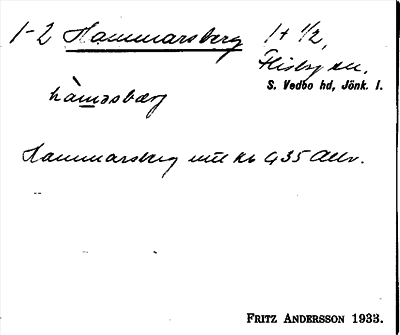 1-2 Hammarsberg 1+ 1/2,
Flisby sn.
S. Vedbo hd, Jönk. l.
hàməsbærj
Hammarsberg mtl Kb G35 AEv.
FRITZ ANDERSSON 1933.